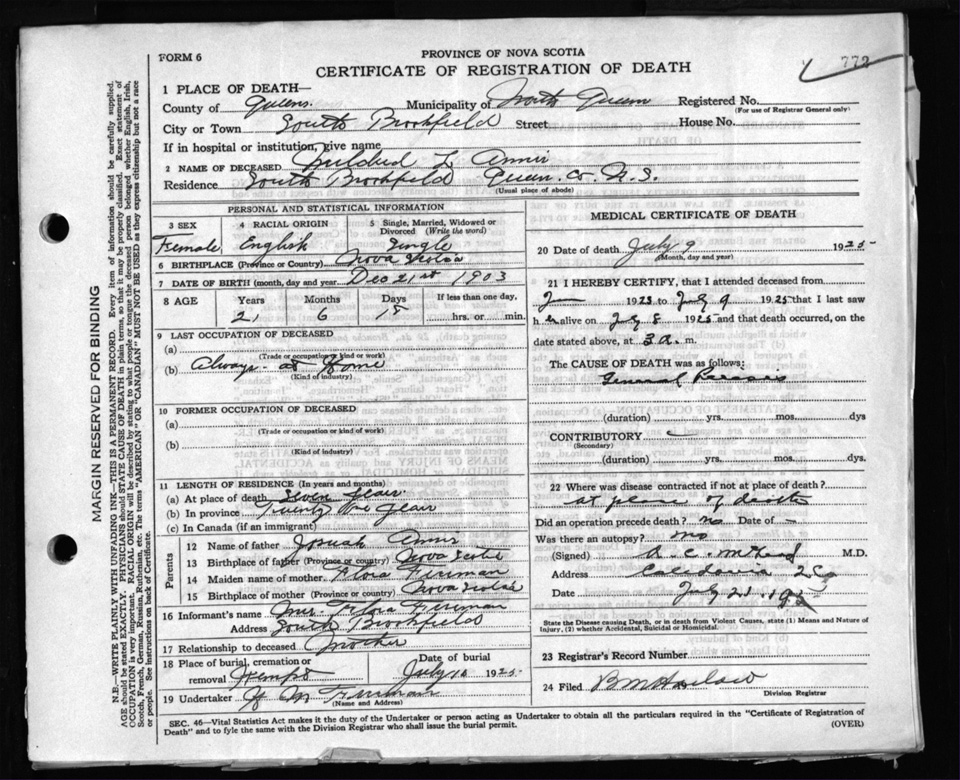 FORM 6
PROVINCE OF NOVA SCOTIA
CERTIFICATE OF REGISTRATION OF DEATH
772
1 PLACE OF DEATH—
County of Queens. Municipality of North Queen Registered No.
(For use of Registrar General only)
City or Town South Brookfield Street House No.
If in hospital or institution, give name
2 NAME OF DECEASED Mildred L Annis
Residence South Brookfield Queen. Co. N. S.
(Usual place of abode)
PERSONAL AND STATISTICAL INFORMATION
3 SEX 4 RACIAL ORIGIN 5 Single, Married, Widowed or Divorced (Write the word)
Female English Single
6 BIRTHPLACE (Province or Country) Nova Scotia
7 DATE OF BIRTH (month, day and year) Dec 21st 1903
8 AGE Years Months Days If less than one day,
21 6 18 hrs. or min.
9 LAST OCCUPATION OF DECEASED
(a)
(Trade or occupation or kind of work)
(b) Always at Home
(Kind of industry)
10 FORMER OCCUPATION OF DECEASED
(a)
(Trade or occupation or kind of work)
(b)
(Kind of industry)
11 LENGTH OF RESIDENCE (In years and months)
(a) At place of death Seven years
(b) In province Twenty One years
(c) In Canada (if an immigrant)
Parents
12 Name of father Josiah Annis
13 Birthplace of father (Province or country) Nova Scotia
14 Maiden name of mother Flora Freeman
15 Birthplace of mother (Province or country) Nova Scotia
16 Informant's name Mrs Flora Freeman
Address South Brookfield
17 Relationship to deceased Mother
18 Place of burial, cremation or removal Kempt Date of burial July 10 1925
19 Undertaker Freeman
(Name and Address)
MEDICAL CERTIFICATE OF DEATH
20 Date of death July 9 1925
(Month, day and year)
21 I HEREBY CERTIFY, that I attended deceased from
1925 to July 9 1925 that I last saw
her alive on July 8 1925 and that death occurred, on the
date stated above, at 3 a. m.
The CAUSE OF DEATH was as follows:
General Paresis
(duration) yrs. mos. dys
CONTRIBUTORY
(Secondary)
(duration) yrs. mos. dys
22 Where was disease contracted if not at place of death?
at place of death
Did an operation precede death? no Date of —
Was there an autopsy? no
(Signed) M.D.
Address Caledonia
Date July 23
State the Disease causing Death, or in death from Violent Causes, state (1) Means and Nature of Injury, (2) whether Accidental, Suicidal or Homicidal.
23 Registrar's Record Number
24 Filed
Division Registrar
SEC. 46—Vital Statistics Act makes it the duty of the Undertaker or person acting as Undertaker to obtain all the particulars required in the "Certificate of Registration of Death" and to fyle the same with the Division Registrar who shall issue the burial permit. (OVER)
MARGIN RESERVED FOR BINDING
N.B.—WRITE PLAINLY WITH UNFADING INK—THIS IS A PERMANENT RECORD. Every item of information should be carefully supplied.
AGE should be stated EXACTLY. PHYSICIANS should STATE CAUSE OF DEATH in plain terms, so that it may be properly classified. Exact statement of
OCCUPATION is very important. RACIAL ORIGIN will be described by stating to what people or tongue the deceased person belonged whether English, Irish,
Scotch, French, German, Russian, Ruthenian, etc. The terms "AMERICAN" OR "CANADIAN" MUST NOT BE USED as they express citizenship but not a race
or people. See instructions on back of Certificate.